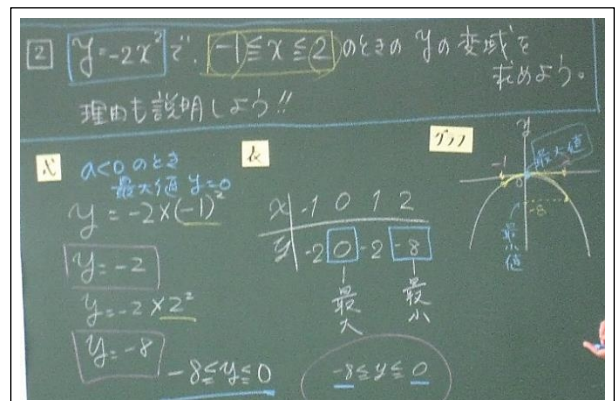 2 y=-2x²で、-1≦x≦2のときの yの変域を
求めよう。
理由も説明しよう!!
式
a<0のとき
最大値 y=0
y=-2×(-1)²
y=-2
y=-2×2²
y=-8
-8≦y≦0
表
x -1 0 1 2
y -2 0 -2 -8
最大
最小
-8≦y≦0
グラフ
y
最大値
-1
0
-8
最小値